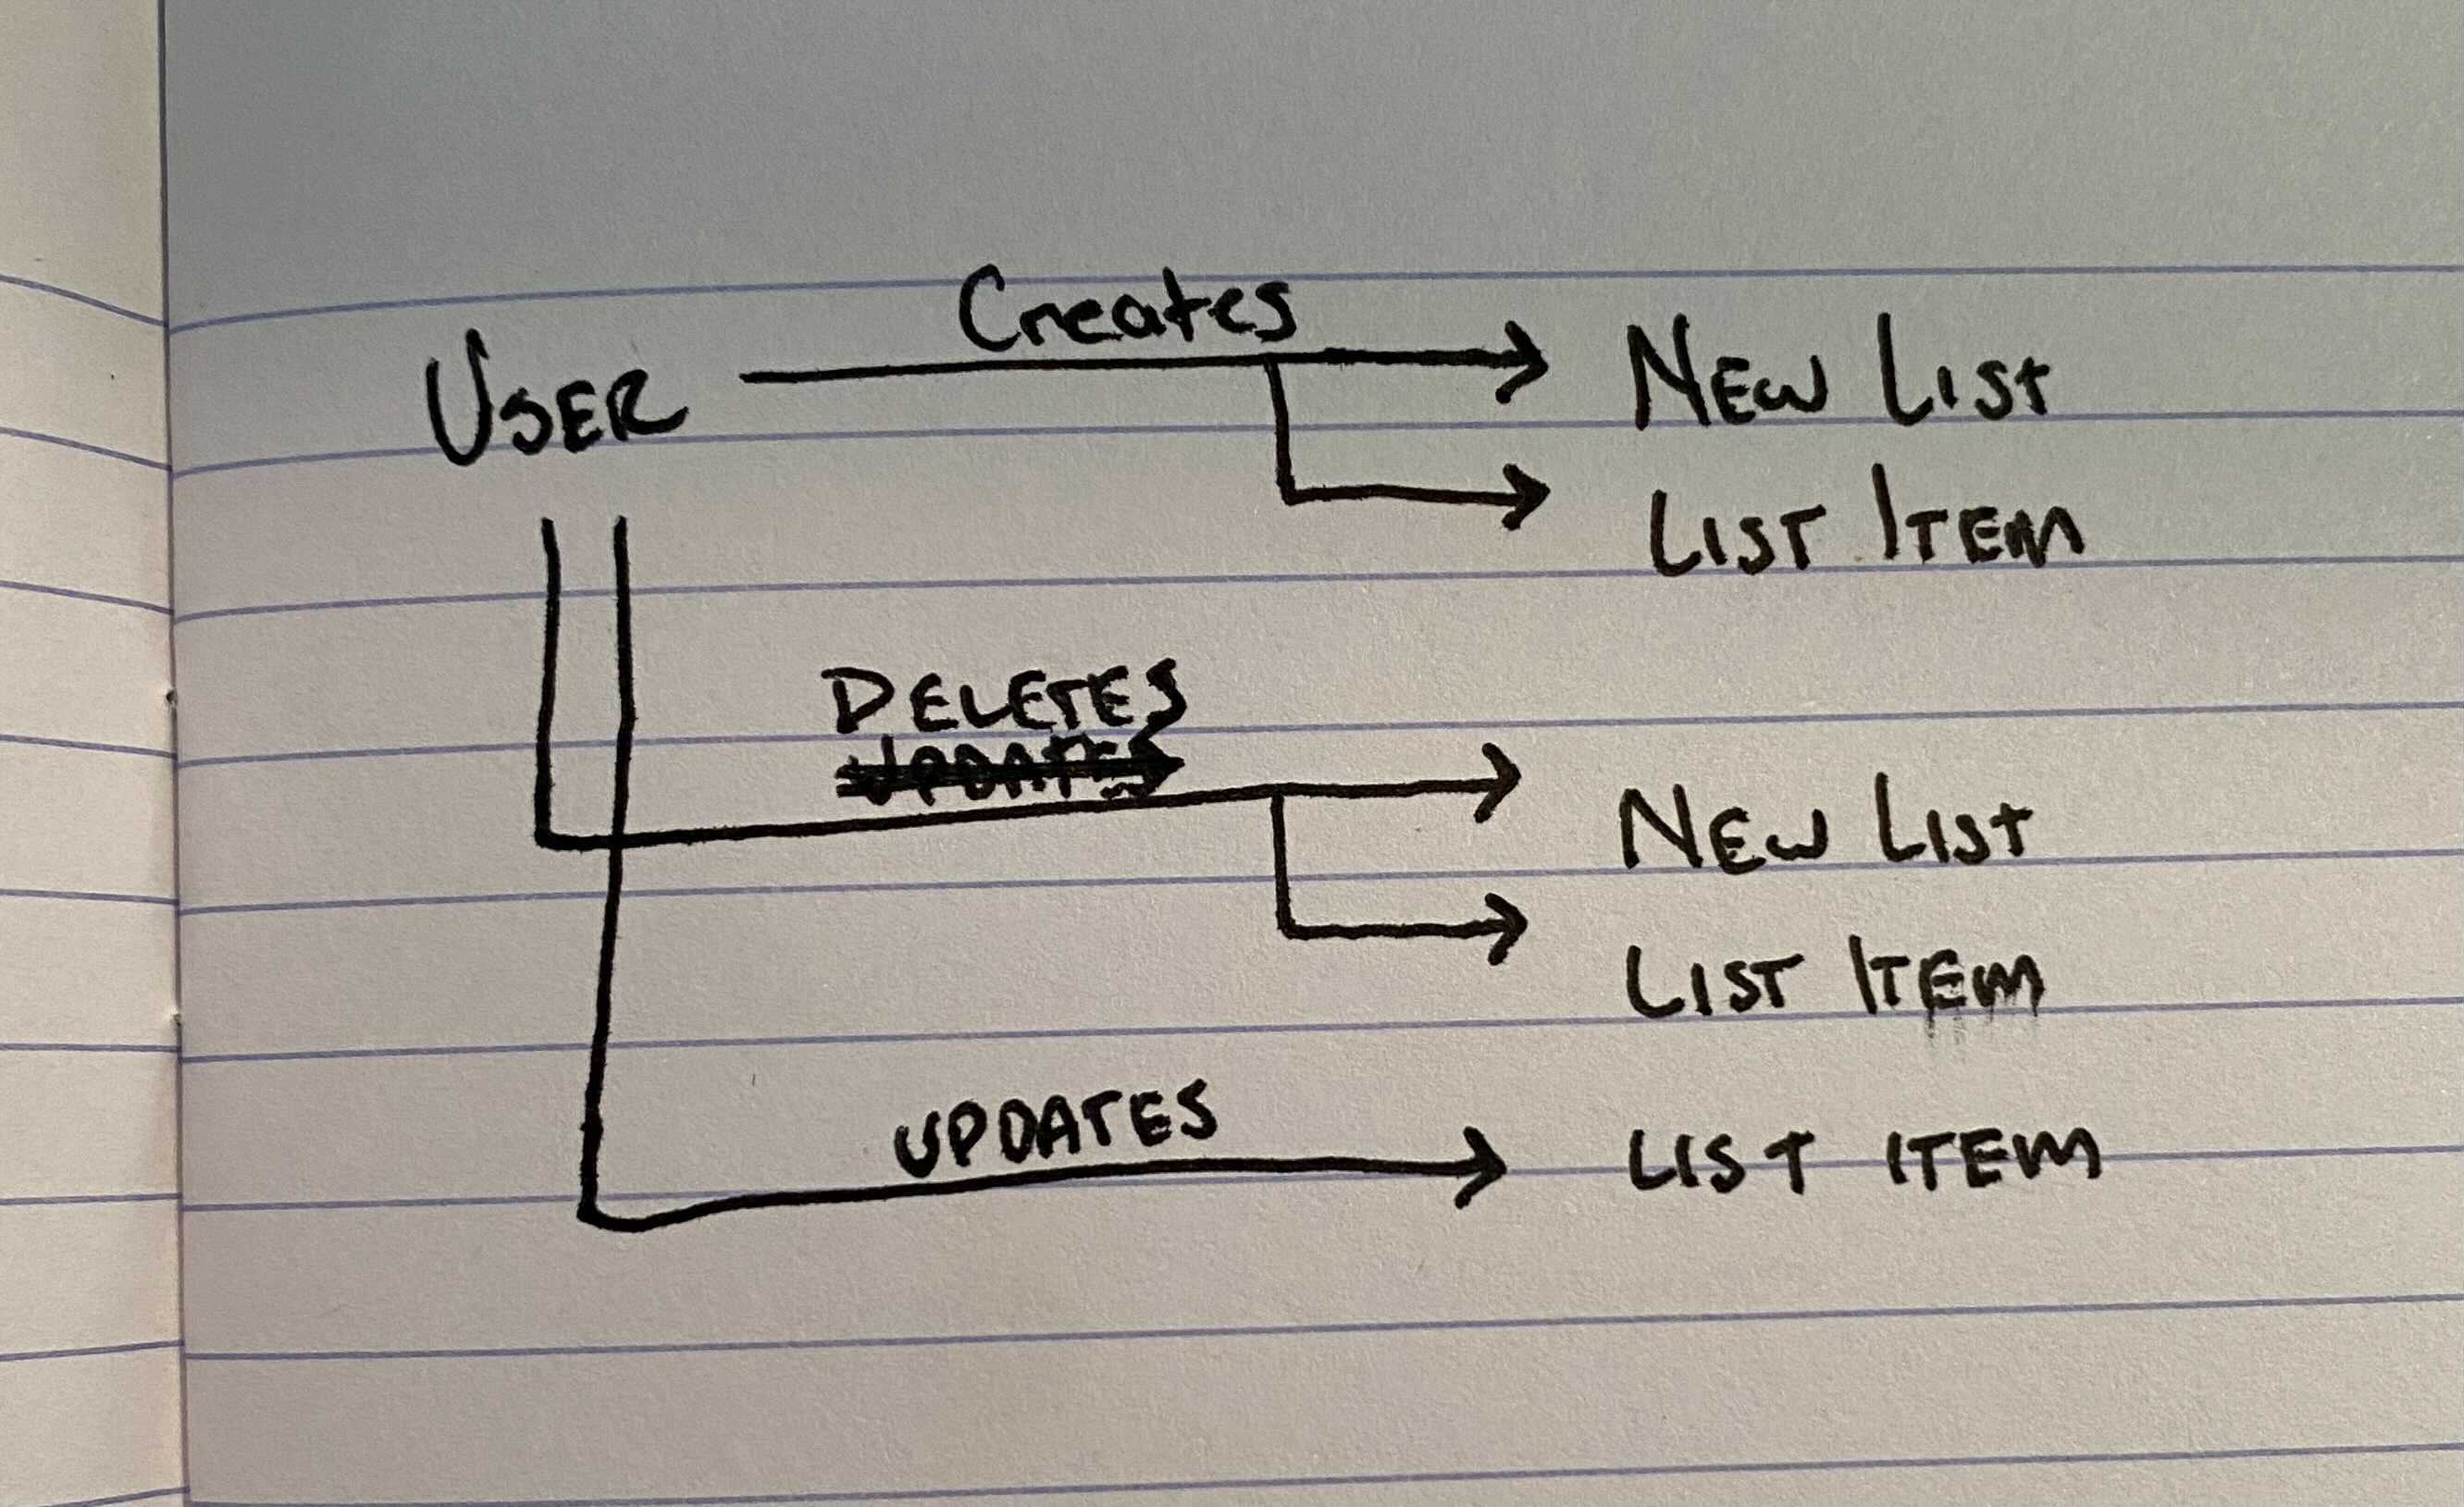 Creates
USER
NEW LIST
LIST ITEM
DELETES
UPDATES
NEW LIST
LIST ITEM
UPDATES
LIST ITEM